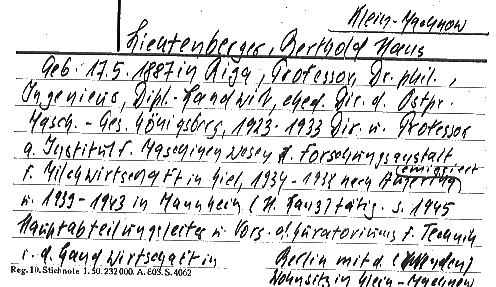 Klein-Machnow
Lichtenberger, Berthold Hans
Geb. 17.5. 1887 in Riga, Professor, Dr. phil.,
Ingenieur, Dipl.-Landwirt, ehed. Dir. d. Ostpr.
Masch.-Ges. Königsberg, 1923-1933 Dir. u. Professor
a. Institut f. Maschinenwesen d. Forschungsanstalt
f. Milchwirtschaft in Kiel, 1934-1938 nach emigriert
u. 1939-1943 in Mannheim (H. Lanz) tätig. s. 1945
Hauptabteilungsleiter u. Vors. d. Kuratoriums f. Technik
i. d. Landwirtschaft in Berlin mit d.
Wohnsitz in Klein-Machnow
Reg. 10. Stichnote 1. 50. 232000. A. 603. S. 4062